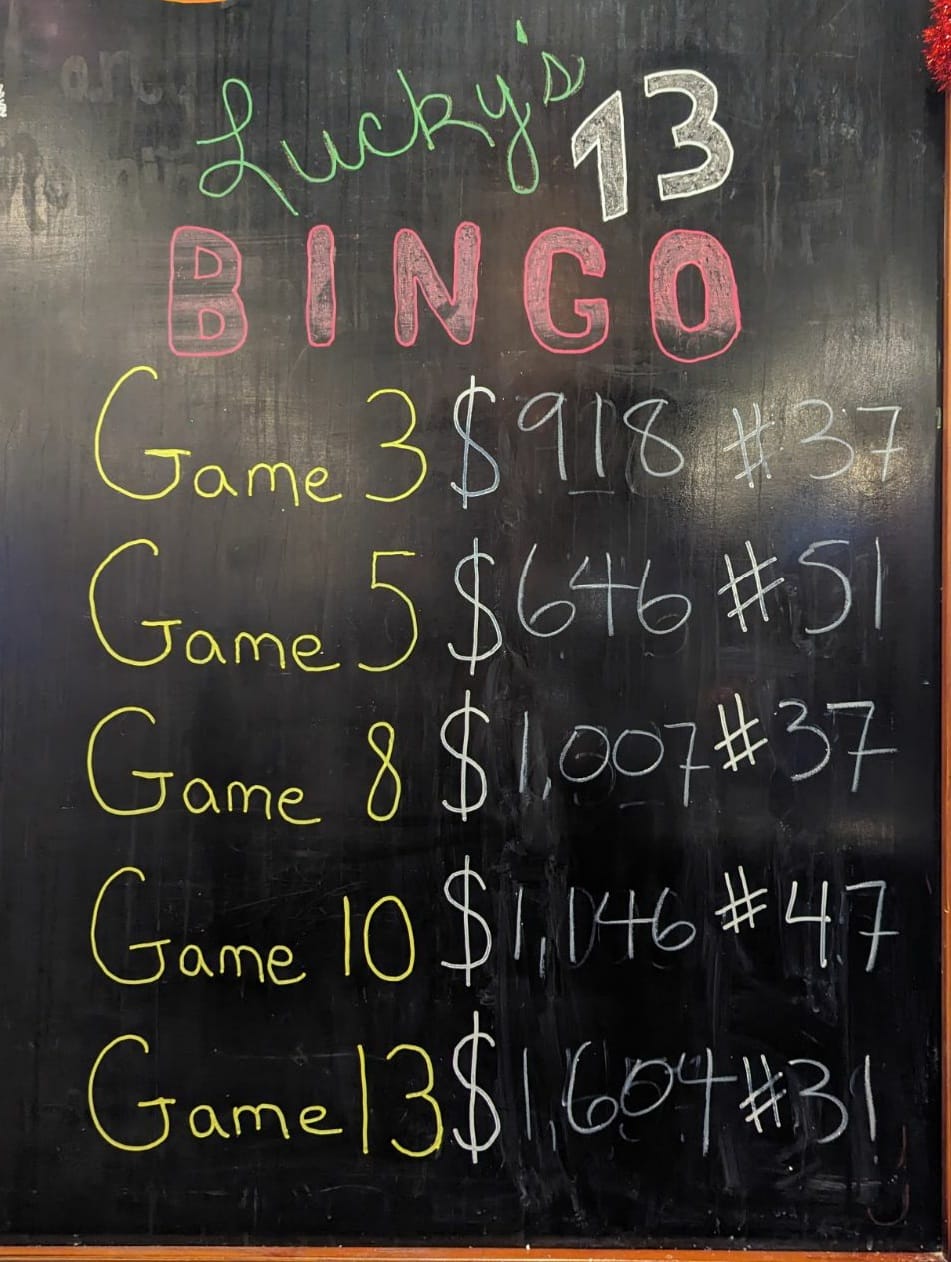 Lucky's 13
BINGO
Game 3 $918 #37
Game 5 $646 #51
Game 8 $1,007 #37
Game 10 $1,146 #47
Game 13 $1,604 #31